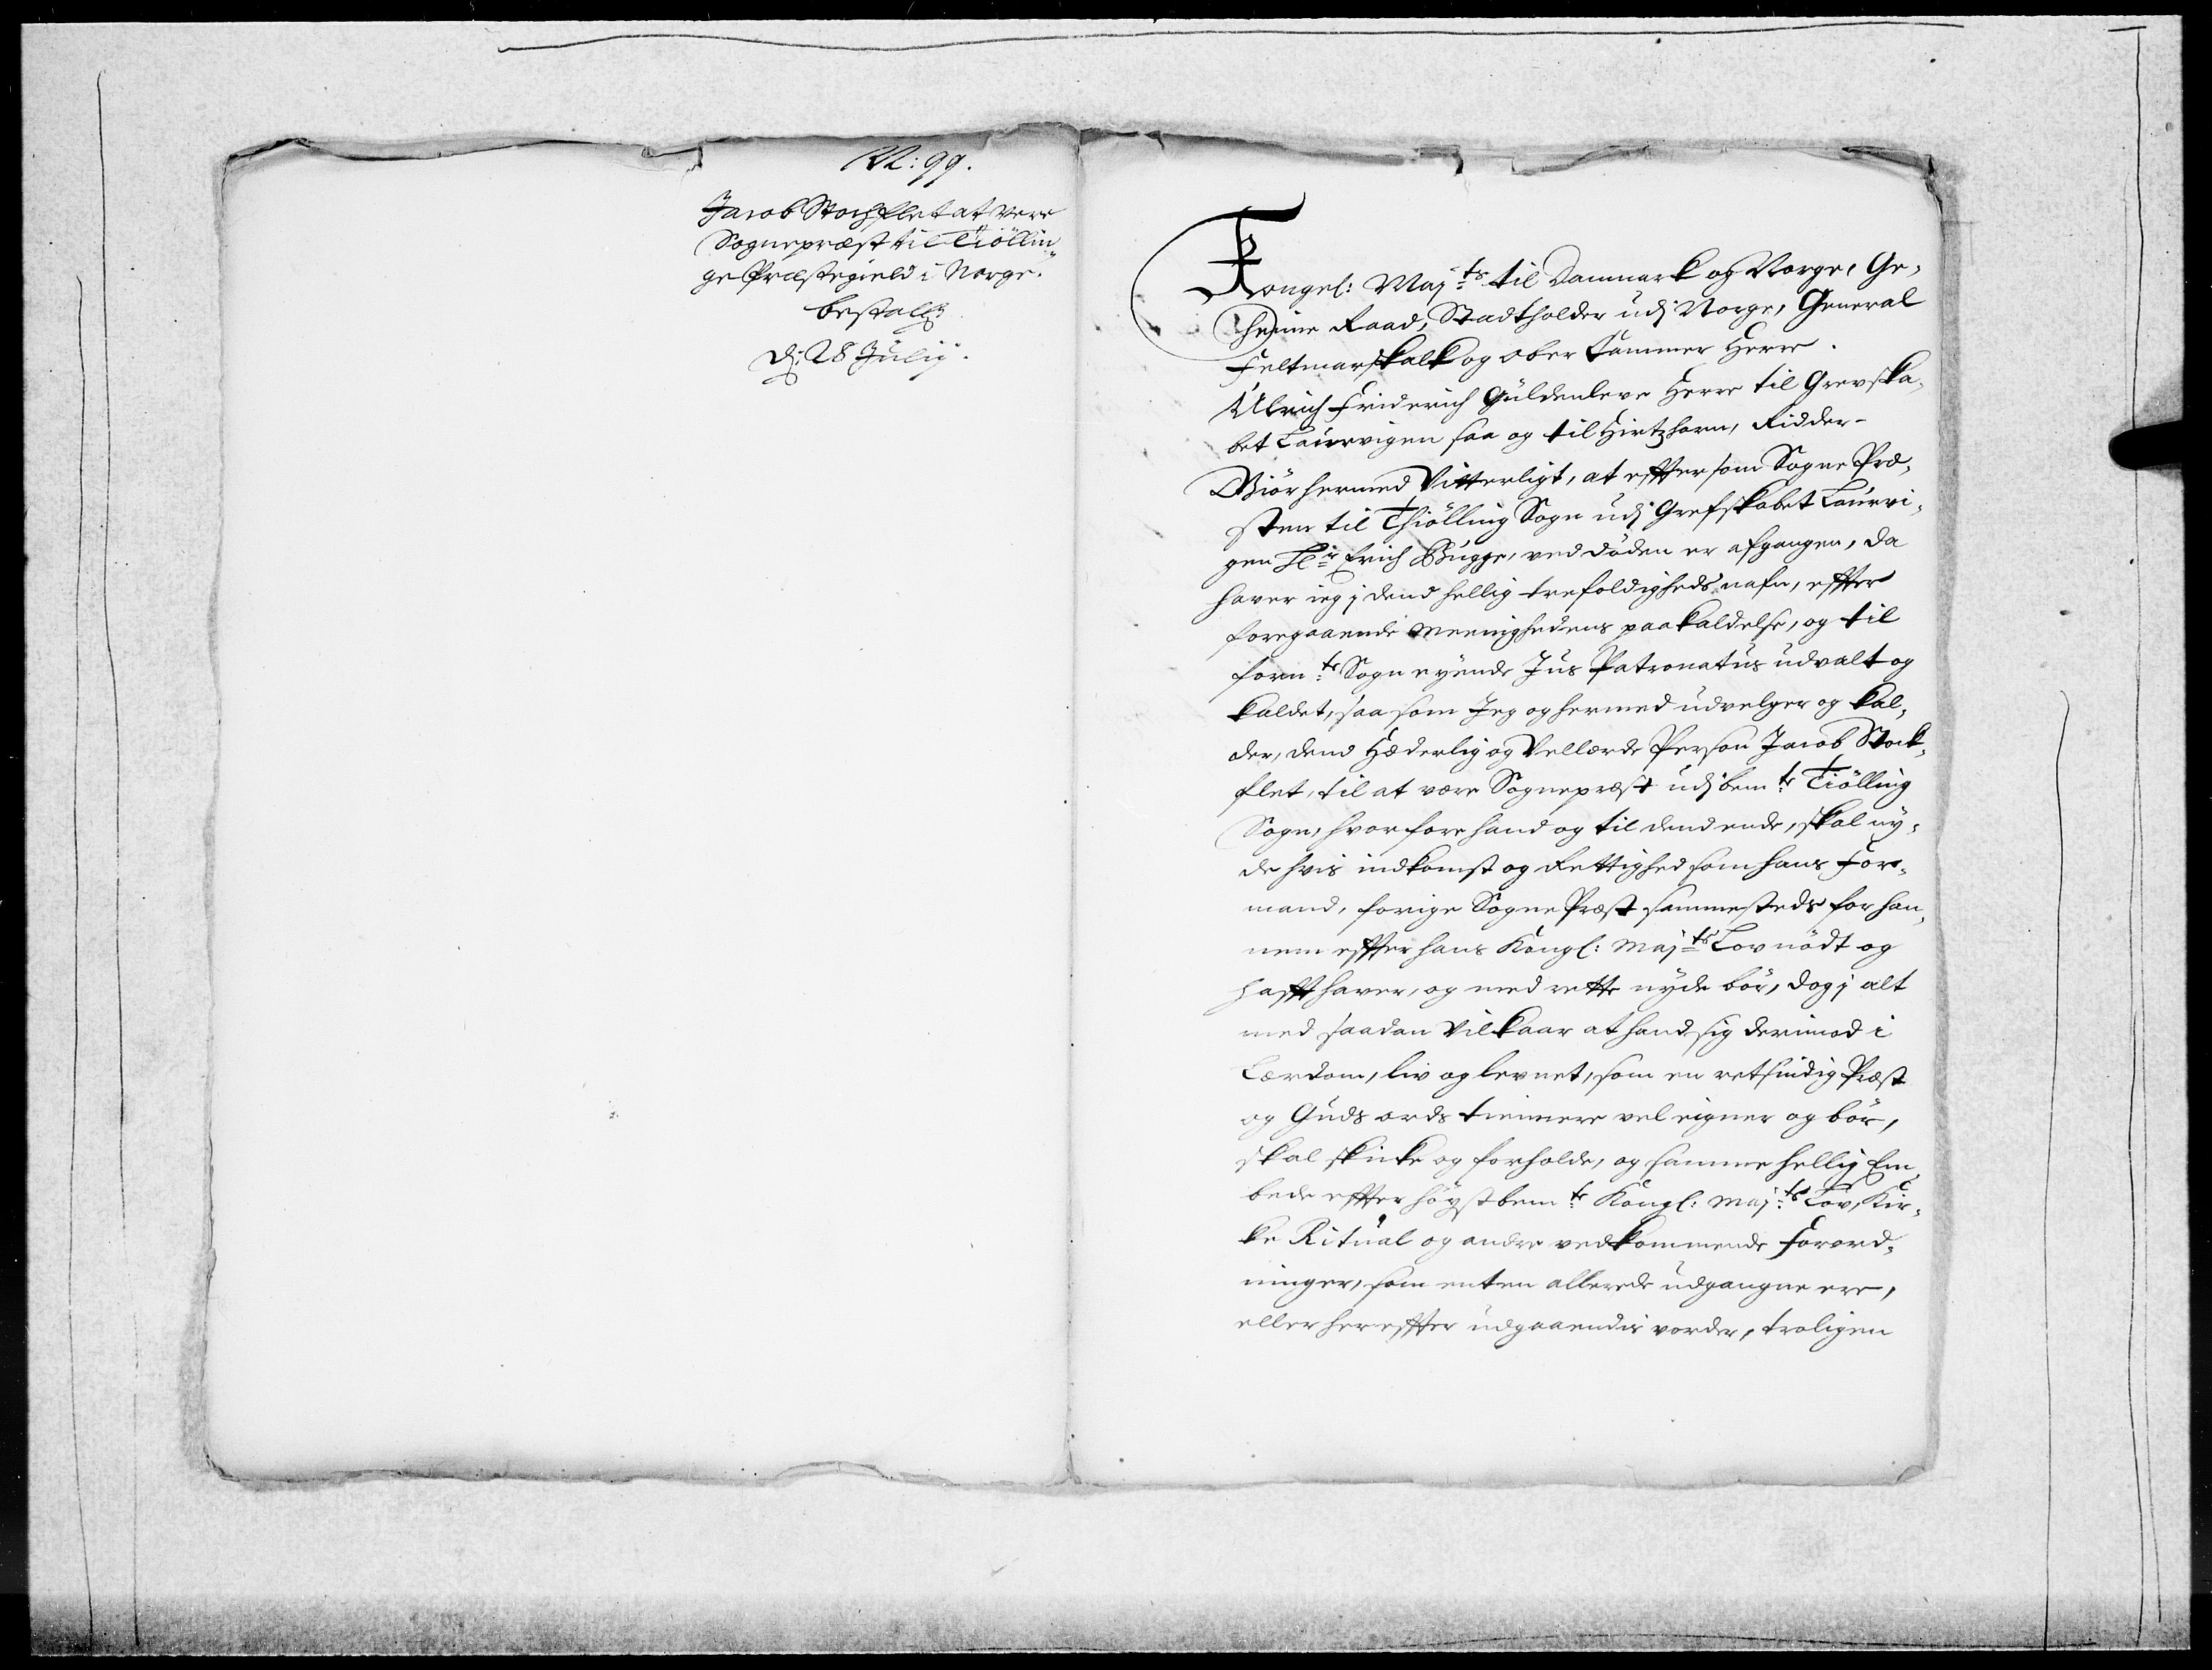 N: 99.
Jacob Stochflet at være
Sognepræst til Tiöllin¬
ge Præstegield i Norge.
bestallg
d: 28 Julij.
Kongel: Maj:ts til Danmark og Norge, Ge¬
heime Raad, Stadtholder udj Norge, General
Feltmarskalk og ober Cammer Herre.
Ulrich Friderich Güldenleve Herre til Grevska¬
bet Laurvigen saa og til Hertzhorn, Ridder-
Giör hermed Vitterligt, at effter som Sogne Præ¬
sten til Thiölling Sogn udj Grefskabet Laurvi¬
gen Hr: Erich Bugge, ved döden er afgangen, da
haver ieg j dend hellig trefoldigheds nafn, effter
foregaaende Meenighedens paakaldelse, og til
forn:te Sogn eyende Jus Patronatus udvalt og
kaldet, saa som Jeg og hermed udvelger og kal¬
der, dend Hæderlig og Vellærde Person Jacob Stock¬
flet, til at være Sognepræst udj bem:te Tiölling
Sogn, hvorfore hand og til dend ende, skal ny¬
de hvis indkomst og Rettighed som hans For¬
mand, forige Sogne Præst sammesteds for han¬
nem effter hans Kongl: Maj:ts Lov nödt og
hafft haver, og med rette nyde bör, dog j alt
med saadan Vilkaar at hand sig derimod i
Lærdom, liv og levnet, som en retsindig Præst
og Guds ords tiennere vel eigner og bör,
skal skicke og forholde, og samme hellig Em¬
bede effter höystbem:te Kongl: Maj:ts Lov, Kir¬
ke Ritual og andre vedkommende Forord¬
ninger, som enten allerede udgangne ere,
eller hereffter udgaaendis vorder, troligen